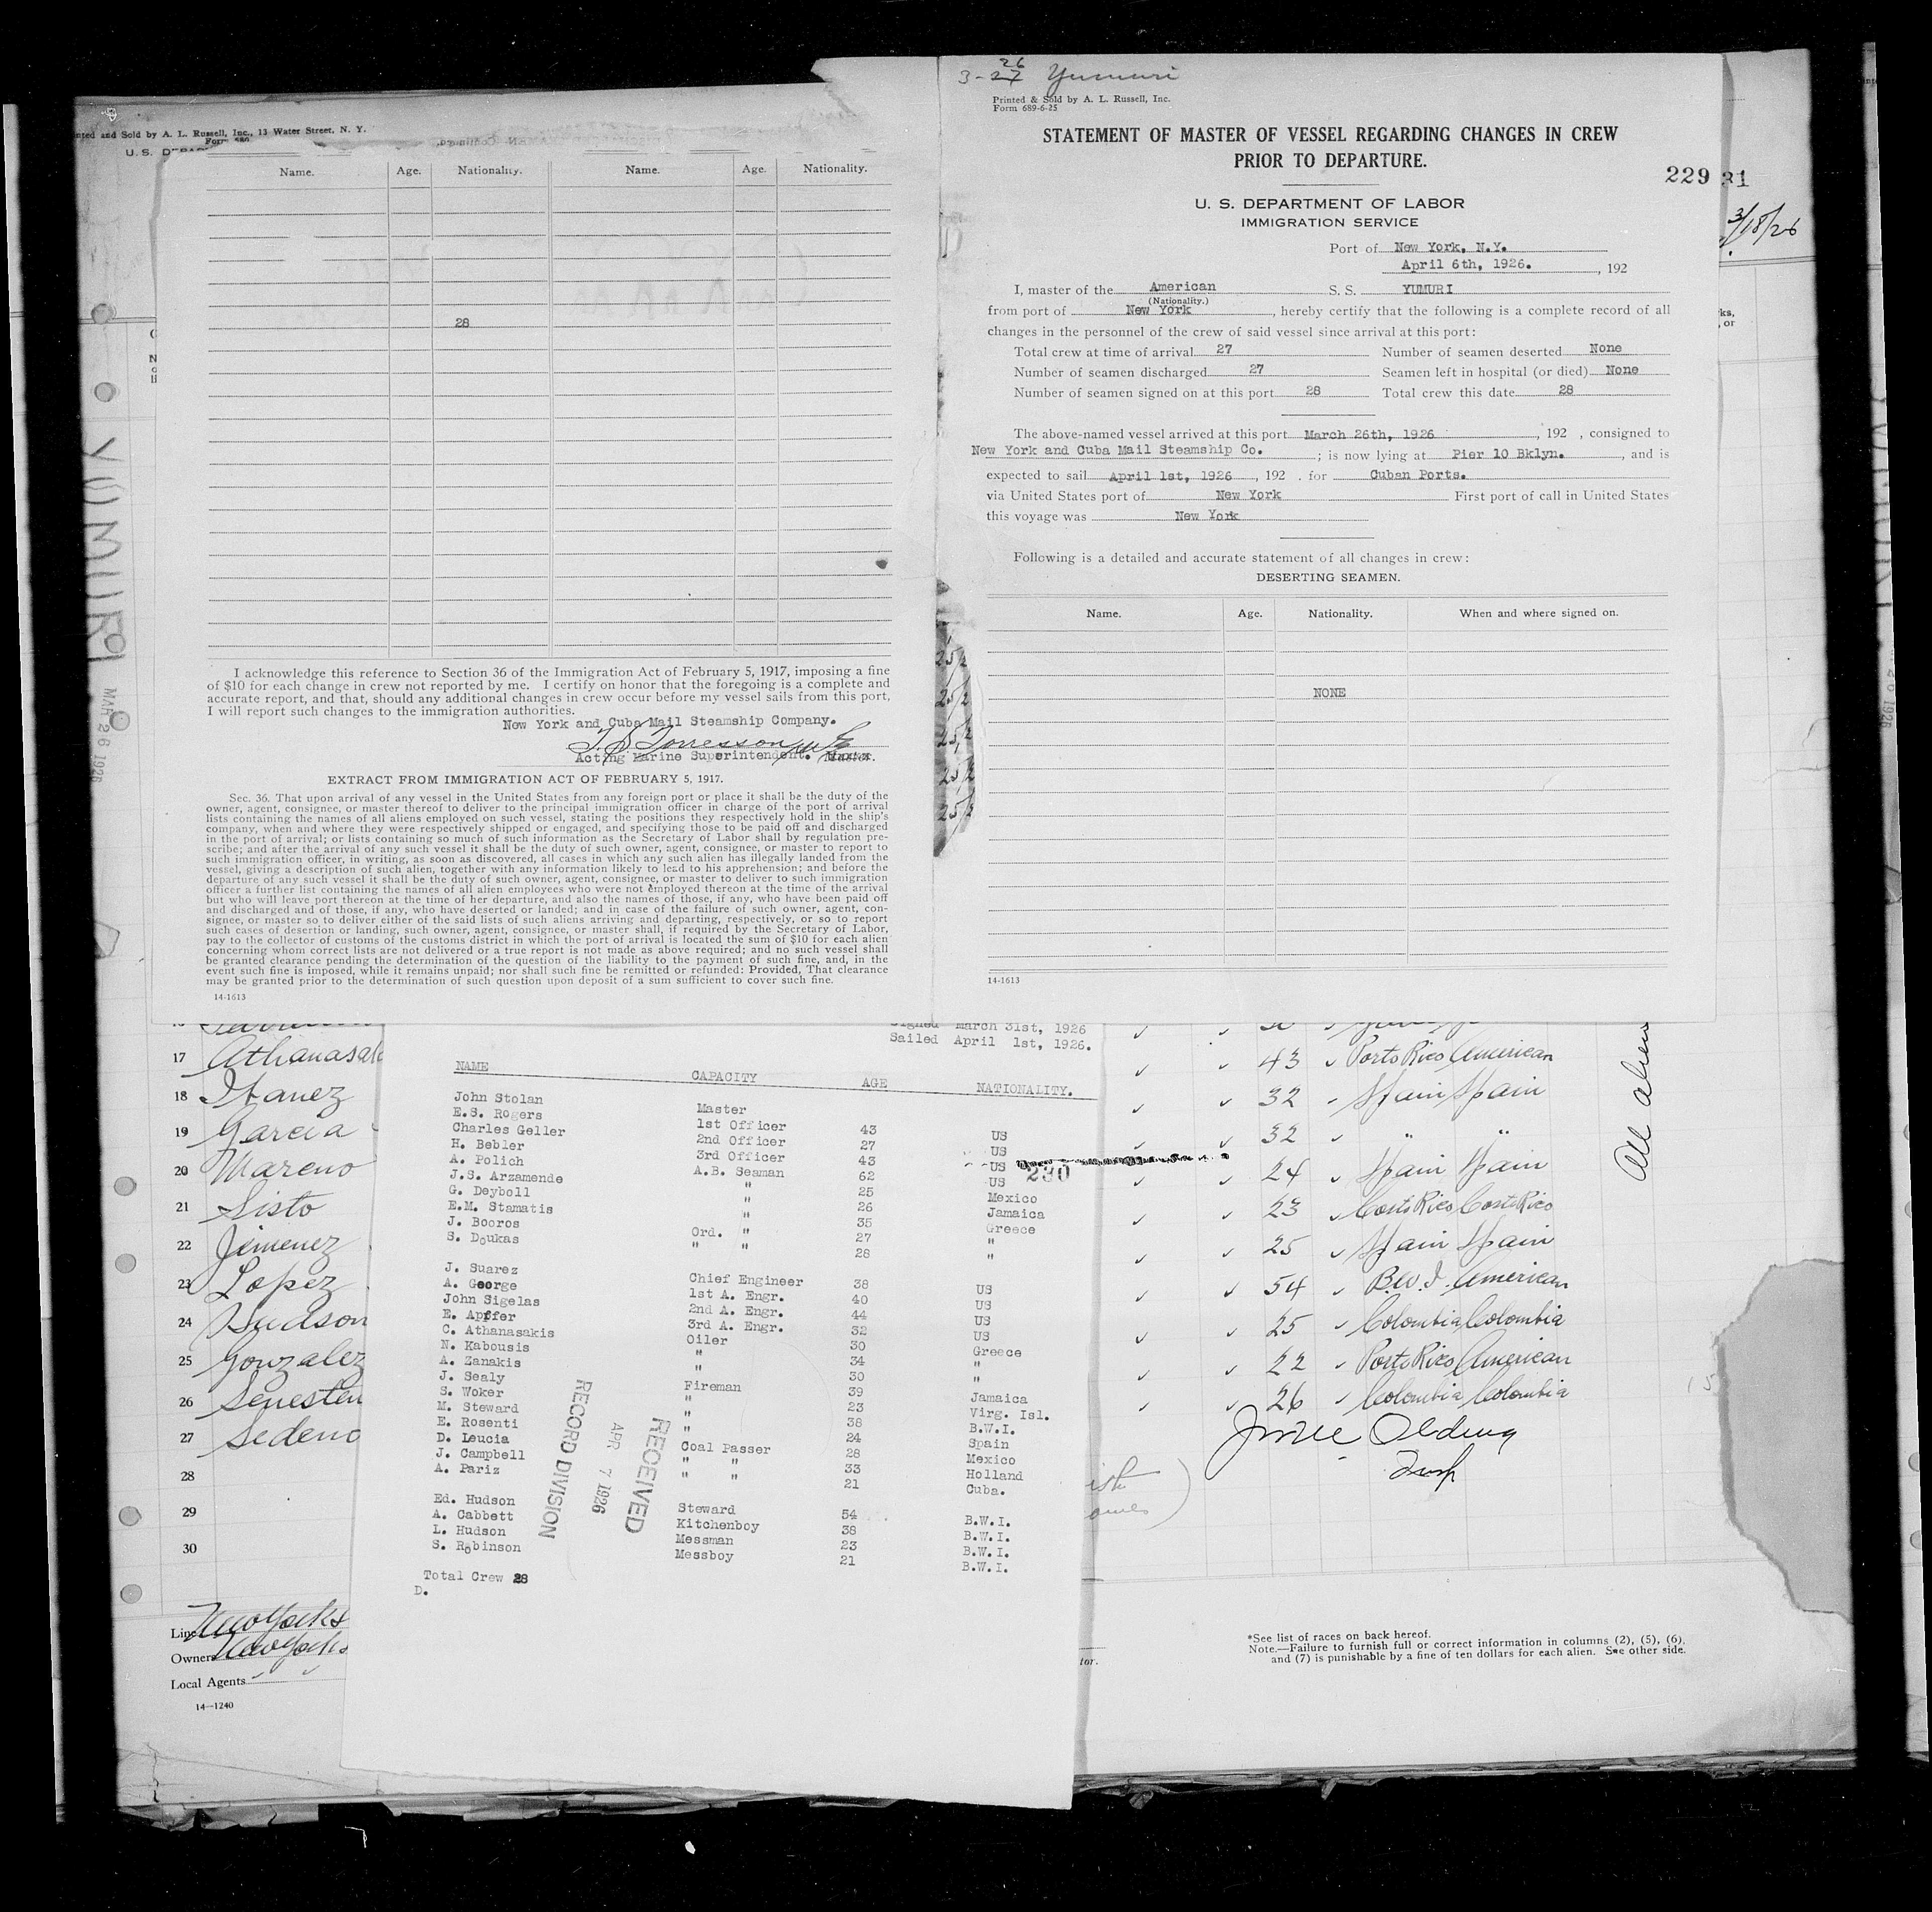 Printed and Sold by A. L. Russell, Inc., 13 Water Street, N. Y.
Form 689
U. S.
Name. Age. Nationality. Name. Age. Nationality.
28
I acknowledge this reference to Section 36 of the Immigration Act of February 5, 1917, imposing a fine
of $10 for each change in crew not reported by me. I certify on honor that the foregoing is a complete and
accurate report, and that, should any additional changes in crew occur before my vessel sails from this port,
I will report such changes to the immigration authorities.
New York and Cuba Mail Steamship Company.
Acting Marine Superintendent. Master.
EXTRACT FROM IMMIGRATION ACT OF FEBRUARY 5, 1917.
Sec. 36. That upon arrival of any vessel in the United States from any foreign port or place it shall be the duty of the
owner, agent, consignee, or master thereof to deliver to the principal immigration officer in charge of the port of arrival
lists containing the names of all aliens employed on such vessel, stating the positions they respectively hold in the ship's
company, when and where they were respectively shipped or engaged, and specifying those to be paid off and discharged
in the port of arrival; or lists containing so much of such information as the Secretary of Labor shall by regulation pre-
scribe; and after the arrival of any such vessel it shall be the duty of such owner, agent, consignee, or master to report to
such immigration officer, in writing, as soon as discovered, all cases in which any such alien has illegally landed from the
vessel, giving a description of such alien, together with any information likely to lead to his apprehension; and before the
departure of any such vessel it shall be the duty of such owner, agent, consignee, or master to deliver to such immigration
officer a further list containing the names of all alien employees who were not employed thereon at the time of the arrival
but who will leave port thereon at the time of her departure, and also the names of those, if any, who have been paid off
and discharged and of those, if any, who have deserted or landed; and in case of the failure of such owner, agent, con-
signee, or master so to deliver either of the said lists of such aliens arriving and departing, respectively, or so to report
such cases of desertion or landing, such owner, agent, consignee, or master shall, if required by the Secretary of Labor,
pay to the collector of customs of the customs district in which the port of arrival is located the sum of $10 for each alien
concerning whom correct lists are not delivered or a true report is not made as above required; and no such vessel shall
be granted clearance pending the determination of the question of the liability to the payment of such fine, and, in the
event such fine is imposed, while it remains unpaid; nor shall such fine be remitted or refunded: Provided, That clearance
may be granted prior to the determination of such question upon deposit of a sum sufficient to cover such fine.
14-1613
26
3-27 Yumuri
Printed & Sold by A. L. Russell, Inc.
Form 689-6-25
STATEMENT OF MASTER OF VESSEL REGARDING CHANGES IN CREW
PRIOR TO DEPARTURE.
229 31
3/18/26
U. S. DEPARTMENT OF LABOR
IMMIGRATION SERVICE
Port of New York, N.Y.
April 6th, 1926. , 192
I, master of the American S. S. YUMURI
(Nationality.)
from port of New York , hereby certify that the following is a complete record of all
changes in the personnel of the crew of said vessel since arrival at this port:
Total crew at time of arrival 27 Number of seamen deserted None
Number of seamen discharged 27 Seamen left in hospital (or died) None
Number of seamen signed on at this port 28 Total crew this date 28
The above-named vessel arrived at this port March 26th, 1926 , 192 , consigned to
New York and Cuba Mail Steamship Co. ; is now lying at Pier 10 Bklyn. , and is
expected to sail April 1st, 1926 , 192 . for Cuban Ports.
via United States port of New York First port of call in United States
this voyage was New York
Following is a detailed and accurate statement of all changes in crew:
DESERTING SEAMEN.
Name. Age. Nationality. When and where signed on.
NONE
14-1613
YUMURI
MAR 26 1926
Signed March 31st, 1926
Sailed April 1st, 1926.
NAME CAPACITY AGE NATIONALITY.
John Stolan Master
E.S. Rogers 1st Officer 43 US
Charles Geller 2nd Officer 27 US
H. Bebler 3rd Officer 43 US
A. Polich A.B. Seaman 62 US
J.S. Arzamende " 25 Mexico
G. Deyboll " 26 Jamaica
E.M. Stamatis " 35 Greece
J. Booros Ord. " 27 "
S. Doukas " " 28 "
J. Suarez Chief Engineer 38 US
A. George 1st A. Engr. 40 US
John Sigelas 2nd A. Engr. 44 US
E. Apffer 3rd A. Engr. 32 US
C. Athanasakis Oiler 30 Greece
N. Kabousis " 34 "
A. Zanakis " 30 "
J. Sealy Fireman 39 Jamaica
S. Woker " 23 Virg. Isl.
M. Steward " 38 B.W.I.
E. Rosenti " 24 Spain
D. Leucia Coal Passer 28 Mexico
J. Campbell " " 33 Holland
A. Pariz " " 21 Cuba.
Ed. Hudson Steward 54 B.W.I.
A. Cabbett Kitchenboy 38 B.W.I.
L. Hudson Messman 23 B.W.I.
S. Robinson Messboy 21 B.W.I.
Total Crew 28
D.
RECEIVED
APR 7 1926
RECORD DIVISION
230
17 Athanasak 43 Porto Rico American
18 Ibanez 32 Spain Spain
19 Garcia 32 " "
20 Mareno 24 Spain Spain
21 Sisto 23 Costa Rico Costa Rico
22 Jimenez 25 Spain Spain
23 Lopez 54 B.W.I. American
24 Hudson 25 Colombia Colombia
25 Gonzalez 22 Porto Rico American
26 Senesten 26 Colombia Colombia
27 Sedeno
28
29
30
All aliens
Insp
Line New York &
Owners New York &
Local Agents
14-1240
tor.
*See list of races on back hereof.
Note.—Failure to furnish full or correct information in columns (2), (5), (6),
and (7) is punishable by a fine of ten dollars for each alien. See other side.